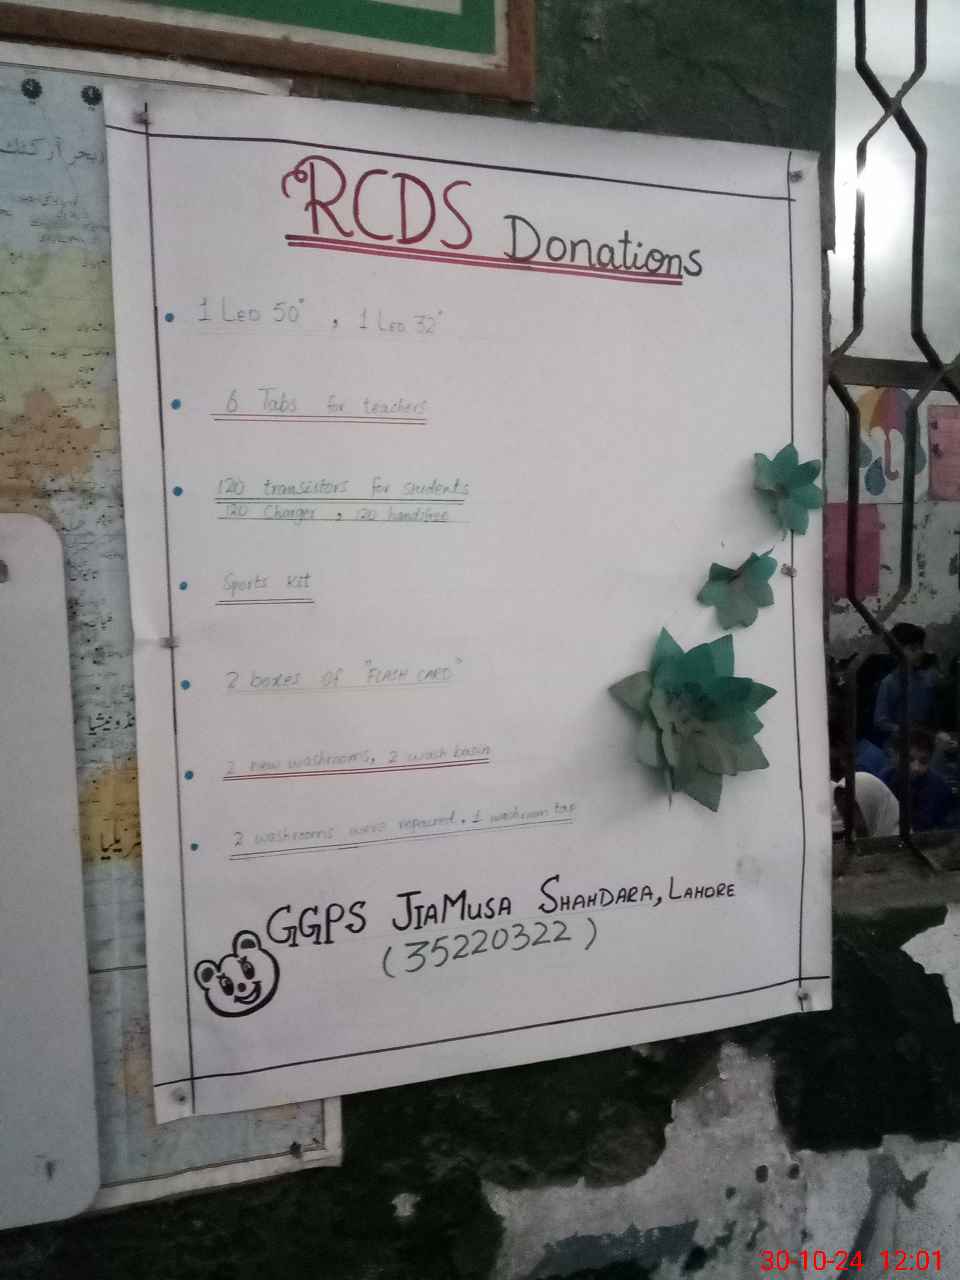 RCDS Donations
1 LED 50" , 1 LED 32"
6 Tabs for teachers
120 transistors for students
120 Charger , 120 handsfree
Sports kit
2 boxes of "FLASH CARD"
2 new washrooms, 2 wash basin
2 washrooms were repaired, 1 washroom tap
GGPS JIAMUSA SHAHDARA, LAHORE
(35220322)
انڈونیشیا
30-10-24 12:01